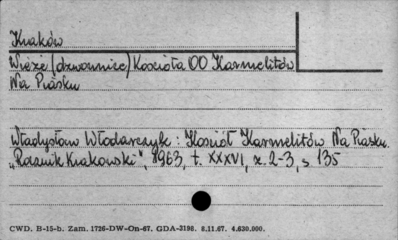 Kraków
Wieże (dzwonnice) Kościoła OO Karmelitów
Na Piasku
Władysław Włodarczyk: Kościół Karmelitów Na Piasku.
„Rocznik Krakowski", 1963, t. XXXVI, z. 2-3, s 135
CWD. B-15-b. Zam. 1726-DW-On-67. GDA-3198. 8.11.67. 4.630.000.